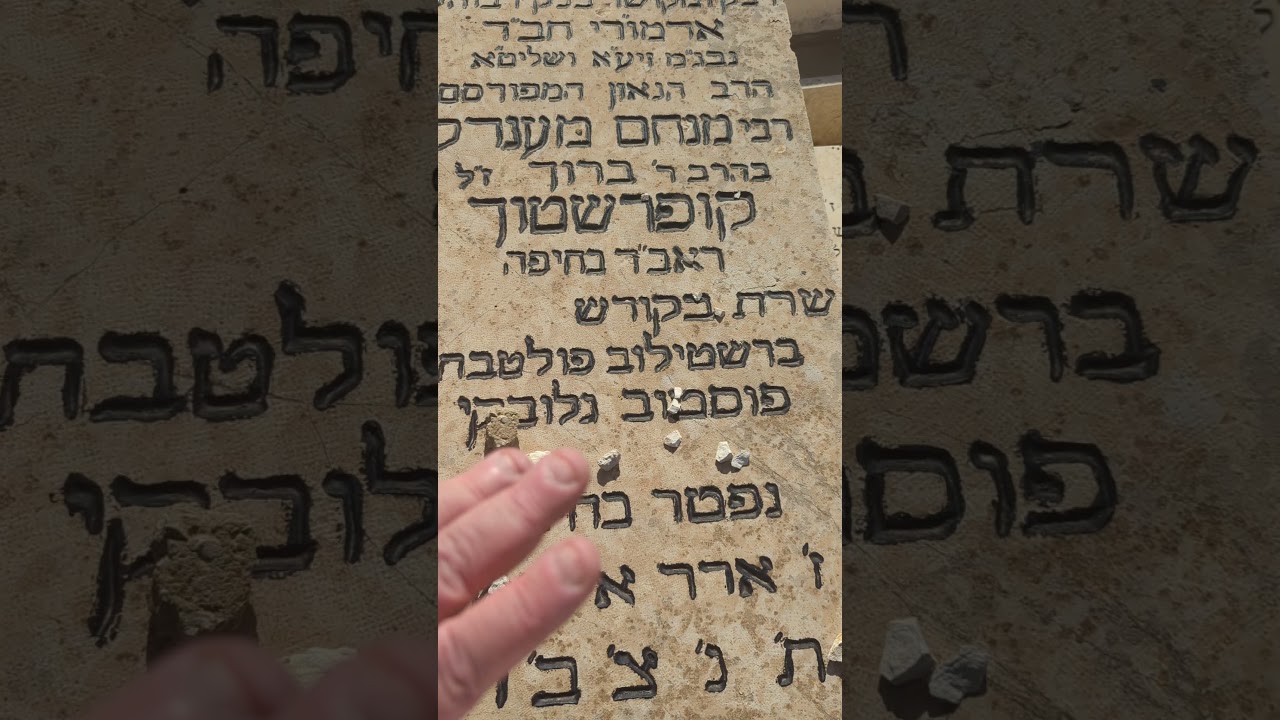 אדמו״רי חב״ד
נבג״מ זיע״א ושליט״א
הרב הגאון המפורסם
רבי מנחם מענדל
בהרב ר׳ ברוך ז״ל
קופרשטוך
ראב״ד בחיפה
שרת בקודש
ברשטילוב פולטבה
פוסטוב גלובקי
נפטר
ז׳ אדר
ת׳ נ׳ צ׳ ב׳